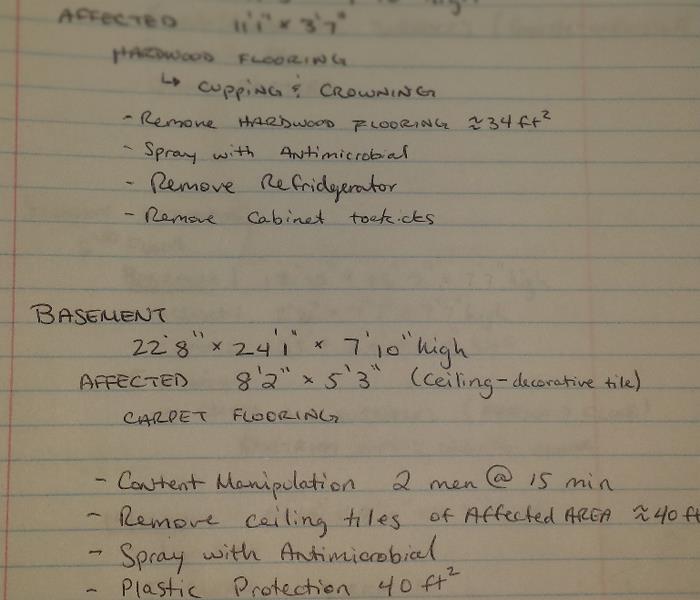 AFFECTED 11'1" × 3'7"
HARDWOOD FLOORING
↳ CUPPING & CROWNING
- Remove HARDWOOD FLOORING ≈34 ft²
- Spray with Antimicrobial
- Remove Refridgerator
- Remove Cabinet toekicks
BASEMENT
22'8" × 24'1" × 7'10" high
AFFECTED 8'2" × 5'3" (ceiling-decorative tile)
CARPET FLOORING
- Content Manipulation 2 men @ 15 min
- Remove ceiling tiles of Affected AREA ≈40 ft
- Spray with Antimicrobial
- Plastic Protection 40 ft²